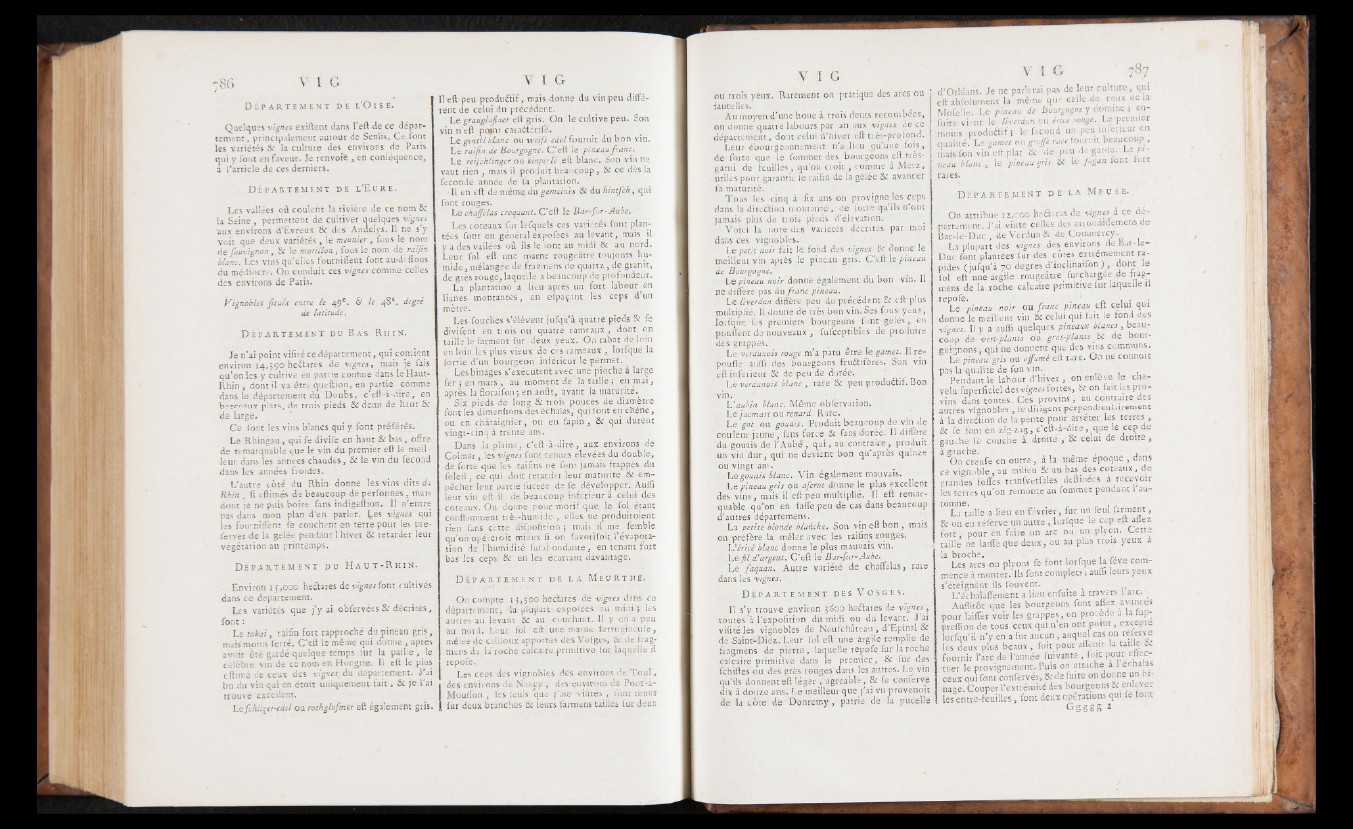 786 V I G
DÉPARTEMENT DE L'OISE.
Quelques vignes existent dans l'est de ce dépar-
tement, principalement autour de Senlis. Ce sont
les variétés & la culture des environs de Paris
qui y sont en faveur. Je renvoie, en conséquence,
à l'article de ces derniers.
DÉPARTEMENT DE L'EURE.
Les vallées où coulent la rivière de ce nom &
la Seine, permettent de cultiver quelques vignes
aux environs d'Evreux & des Andelys. Il ne s'y
voit que deux variétés, le meunier, sous le nom
de sauvignon, & le morillon, sous le nom de raisin
blanc. Les vins qu'elles fournissent sont au-dessous
du médiocre. On conduit ces vignes comme celles
des environs de Paris.
Vignobles situés entre le 49e. & le 48e. degré
de latitude.
DÉPARTEMENT DU BAS RHIN.
Je n'ai point visité ce département, qui contient
environ 14,590 hectares de vignes, mais je sais
qu'on les y cultive en partie comme dans le Haut-
Rhin, dont il va être question, en partie comme
dans le département du Doubs, c'est-à-dire, en
berceaux plats, de trois pieds & demi de haut &
de large.
Ce sont les vins blancs qui y sont préférés.
Le Rhingau, qui se divise en haut & bas, offre
de remarquable que le vin du premier est le meil-
leur dans les années chaudes, & le vin du second
dans les années froides.
L'autre côté du Rhin donne les vins dits du
Rhin, si estimés de beaucoup de personnes, mais
dont je ne puis boire sans indigestion. Il n'entre
pas dans mon plan d'en parler. Les vignes qui
les fournissent se couchent en terre pour les pré-
server de la gelée pendant l'hiver & retarder leur
végétation au printemps.
DÉPARTEMENT DU HAUT-RHIN.
Environ 15,000 hectares de vignes sont cultivés
dans ce département.
Les variétés que j'y ai observées & décrites,
sont :
Le tokai, raisin fort rapproché du pineau gris,
mais moins serré. C'est le même qui donne, après
avoir été gardé quelque temps sur la paille, le
célèbre vin de ce nom en Hongrie. Il est le plus
estimé de ceux des vignes du département. J'ai
bu du vin qui en étoit uniquement fait, & je l'ai
trouvé excellent.
Le schlizer-edel ou rothglasmer est également gris.
V I G
Il est peu productif, mais donne du vin peu diffé-
rent de celui du précédent.
Le grauglasner est gris. On le cultive peu. Son
vin n'est point caractérisé.
Le gentil blanc ou weiss edel fournit du bon vin.
Le raisin de Bourgogne. C'est le pineau franc.
Le reischlinger ou kniperlé est blanc. Son vin ne
vaut rien, mais il produit beaucoup, & ce dès la
seconde année de sa plantation.
Il en est de même du gemeines & du hintsch, qui
sont rouges.
Le chasselas croquant. C'est le Bar-sur-Aube.
Les coteaux sur lesquels ces variétés sont plan-
tées sont en général exposées au levant, mais il
y a des vallées où ils le sont au midi & au nord.
Leur sol est une marne rougeâtre toujours hu-
mide, mélangée de fragmens de quartz, de granit,
de grès rouge, laquelle a beaucoup de profondeur.
La plantation a lieu après un fort labour en
lignes montantes, en espaçant les ceps d'un
mètre.
Les souches s'élèvent jusqu'à quatre pieds & se
divisent en trois ou quatre rameaux, dont on
taille le sarment sur deux yeux. On rabat de loin
en loin les plus vieux de ces rameaux, lorsque la
sortie d'un bourgeon inférieur le permet.
Les binages s'exécutent avec une pioche à large
fer ; en mars, au moment de la taille ; en mai,
après la floraison ; en août, avant la maturité.
Six pieds de long & trois pouces de diamètre
sont les dimensions des échalas, qui sont en chêne,
ou en châtaignier, ou en sapin, & qui durent
vingt-cinq à trente ans.
Dans la plaine, c'est-à-dire, aux environs de
Colmar, les vignes sont tenues élevées du double,
de sorte que les raisins ne sont jamais frappés du
soleil, ce qui doit retarder leur maturité & em-
pêcher leur partie sucrée de se développer. Aussi
leur vin est-il de beaucoup inférieur à celui des
coteaux. On donne pour motif que le sol étant
constamment très-humide, elles ne produiroient
rien sans cette disposition ; mais il me semble
qu'on opéreroit mieux si on favorisoit l'évapora-
tion de l'humidité surabondante, en tenant fort
bas les ceps & en les écartant davantage.
DÉPARTEMENT DE LA MEURTHE.
On compte 13,500 hectares de vignes dans ce
département, la plupart exposées au midi ; les
autres au levant & au couchant. Il y en a peu
au nord. Leur sol est une marne ferrugineuse,
mêlée de cailloux apportés des Vosges, & de frag-
mens de la roche calcaire primitive sur laquelle il
repose.
Les ceps des vignobles des environs de Toul,
des environs de Nancy, des environs de Pont-à-
Mousson, les seuls que j'aie visités, sont tenus
sur deux branches & leurs sarmens taillés sur deux
V I G
ou trois yeux. Rarement on pratique des arcs ou
sautelles.
Au moyen d'une houe à trois dents recourbées,
on donne quatre labours par an aux vignes de ce
département, dont celui d'hiver est très-profond.
Leur ébourgeonnement n'a lieu qu'une fois,
de sorte que le sommet des bourgeons est très-
garni de feuilles, qu'on croit, comme à Metz,
utiles pour garantir le raisin de la gelée & avancer
sa maturité.
Tous les cinq à six ans on provigne les ceps
dans la direction montante, de sorte qu'ils n'ont
jamais plus de trois pieds d'élévation.
Voici la note des variétés décrites par moi
dans ces vignobles.
Le petit noir fait le fond des vignes & donne le
meilleur vin après le pineau gris. C'est le pineau
de Bourgogne.
Le pineau noir donne également du bon vin. Il
ne diffère pas du franc pineau.
Le liverdun diffère peu du précédent & est plus
multiplié. Il donne de très bon vin. Ses sous-yeux,
lorsque les premiers bourgeons sont gelés, en
poussent de nouveaux, susceptibles de produire
des grappes.
Le verdunois rouge m'a paru être le gamet. Il re-
pousse aussi des bourgeons fructifères. Son vin
est inférieur & de peu de durée.
Le verdunois blanc, rare & peu productif. Bon
vin.
L'aubin blanc. Même observation.
Le jacmart ou renard. Rare.
Le goe ou gouais. Produit beaucoup de vin de
couleur jaune, sans force & sans durée. Il diffère
du gouais de l'Aube, qui, au contraire, produit
un vin dur, qui ne devient bon qu'après quinze
ou vingt ans.
Le gouais blanc. Vin également mauvais.
Le pineau gris ou aserot donne le plus excellent
des vins, mais il est peu multiplié. Il est remar-
quable qu'on en fasse peu de cas dans beaucoup
d'autres départemens.
La petite blonde blanche. Son vin est bon, mais
on préfère la mêler avec les raisins rouges.
L'éricé blanc donne le plus mauvais vin.
Le fil d'argent. C'est le Bar-sur-Aube.
Le faquan. Autre variété de chasselas, rare
dans les vignes.
DÉPARTEMENT DES VOSGES.
Il s'y trouve environ 3600 hectares de vignes,
toutes à l'exposition du midi ou du levant. J'ai
visité les vignobles de Neufchâteau, d'Epinal &
de Saint-Diez. Leur sol est une argile remplie de
fragmens de pierre, laquelle repose sur la roche
calcaire primitive dans le premier, & sur des
schistes ou des grès rouges dans les autres. Le vin
qu'ils donnent est léger, agréable, & se conserve
dix à douze ans. Le meilleur que j'ai vu provenoit
de la côte de Donremy, patrie de la pucelle
V I G 787
d'Orléans. Je ne parlerai pas de leur culture, qui
est absolument la même que celle de ceux de la
Moselle. Le pineau de Bourgogne y domine ; en-
suite vient le liverdun ou éricé rouge. Le premier
moins productif ; le second un peu inférieur en
qualité. Le gamet ou grosse race fournit beaucoup,
mais son vin est plat & de peu de garde. Le pi-
neau blanc, le pineau gris & le fagan sont fort
rares.
DÉPARTEMENT DE LA MEUSE.
On attribue 12,000 hectares de vignes à ce dé-
partement. J'ai visité celles des arrondissemens de
Bar-le-Duc, de Verdun & de Commercy.
La plupart des vignes des environs de Bar-le-
Duc sont plantées sur des côtes extrêmement ra-
pides (jusqu'à 70 degrés d'inclinaison), dont le
sol est une argile rougeâtre surchargée de frag-
mens de la roche calcaire primitive sur laquelle il
repose.
Le pineau noir ou franc pineau est celui qui
donne le meilleur vin & celui qui fait le fond des
vignes. Il y a aussi quelques pineaux blancs, beau-
coup de vert-plants ou gros-plants & de bour-
guignons, qui ne donnent que des vins communs.
Le pineau gris ou affumé est rare. On ne connoît
pas la qualité de son vin.
Pendant le labour d'hiver, on enlève le che-
velu superficiel des vignes fortes, & on fait les pro-
vins dans toutes. Ces provins, au contraire des
autres vignobles, se dirigent perpendiculairement
à la direction de la pente pour arrêter les terres,
& se font en zig-zag, c'est-à-dire, que le cep de
gauche se couche à droite, & celui de droite,
à gauche.
On creuse en outre, à la même époque, dans
ce vignoble, au milieu & au bas des coteaux, de
grandes fosses transversales destinées à recevoir
les terres qu'on remonte au sommet pendant l'au-
tomne.
La taille a lieu en février, sur un seul sarment,
& on en réserve un autre, lorsque le cep est assez
fort, pour en faire un arc ou un plyon. Cette
taille ne laisse que deux, ou au plus trois yeux à
la broche.
Les arcs ou plyons se font lorsque la sève com-
mence à monter. Ils sont complets ; aussi leurs yeux
s'éteignent ils souvent.
L'échalassement a lieu ensuite à travers l'arc.
Aussitôt que les bourgeons sont assez avancés
pour laisser voir les grappes, on procède à la sup-
pression de tous ceux qui n'en ont point, excepté
lorsqu'il n'y en a sur aucun, auquel cas on réserve
les deux plus beaux, soit pour asseoir la taille &
fournir l'arc de l'année suivante, soit pour effec-
tuer le provignement. Puis on attache à l'échalas
ceux qui sont conservés, & de suite on donne un bi-
nage. Couper l'extrémité des bourgeons & enlever
les entre-feuilles, sont deux opérations qui se font
Ggggg 2